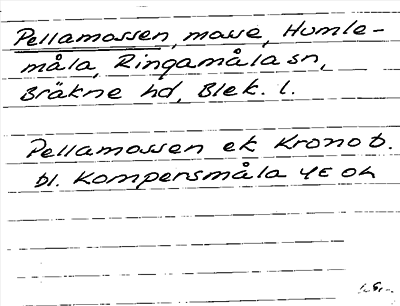 Pellamossen, mosse, Humle-
måla, Ringamåla sn,
Bräkne hd, Blek. l.
Pellamossen ek Kronob.
bl. Kompersmåla 4E oh